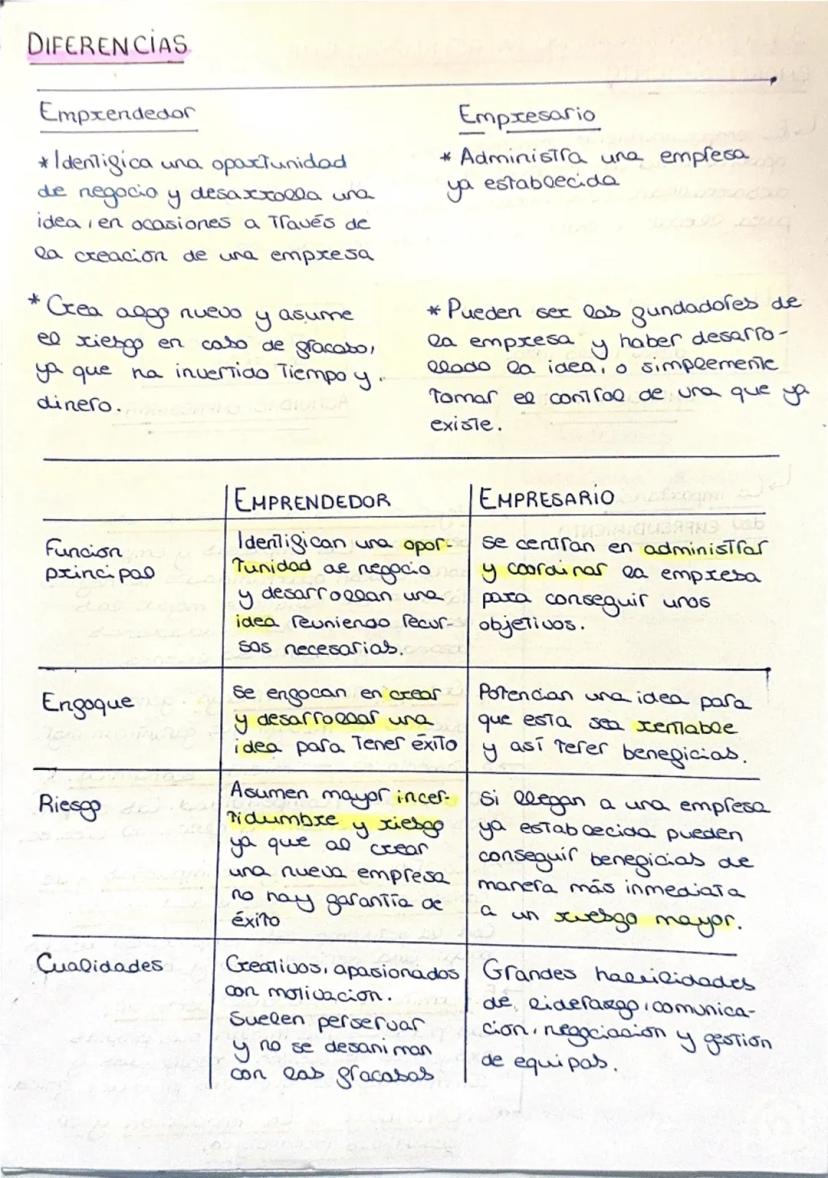 DIFERENCIAS
Emprendedor
* Identifica una oportunidad
de negocio y desarrolla una
idea, en ocasiones a través de
la creación de una empresa
* Crea algo nuevo y asume
el riesgo en caso de fracaso,
ya que ha invertido tiempo y
dinero.
Empresario
* Administra una empresa
ya establecida
* Pueden ser los fundadores de
la empresa y haber desarro-
llado la idea, o simplemente
tomar el control de una que ya
existe.
EMPRENDEDOR
EMPRESARIO
Función
principal
Identifican una opor-
tunidad de negocio
y desarrollan una
idea reuniendo recur-
sos necesarios.
Se centran en administrar
y coordinar la empresa
para conseguir unos
objetivos.
Enfoque
Se enfocan en crear
y desarrollar una
idea para tener éxito
Potencian una idea para
que esta sea rentable
y así tener beneficios.
Riesgo
Asumen mayor incer-
tidumbre y riesgo
ya que al crear
una nueva empresa
no hay garantía de
éxito
Si llegan a una empresa
ya establecida pueden
conseguir beneficios de
manera más inmediata
a un riesgo mayor.
Cualidades
Creativos, apasionados
con motivación.
Suelen perservar
y no se desaniman
con los fracasos
Grandes habilidades
de liderazgo, comunica-
ción, negociación y gestión
de equipos.